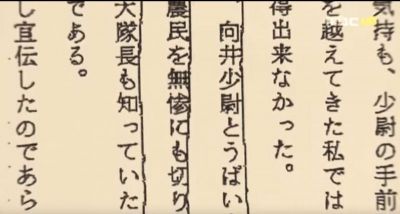 気持も、少尉の手前
を越えてきた私では
得出来なかった。
、向井少尉とうばい
農民を無惨にも切り
大隊長も知っていた
である。
し宣伝したのであら